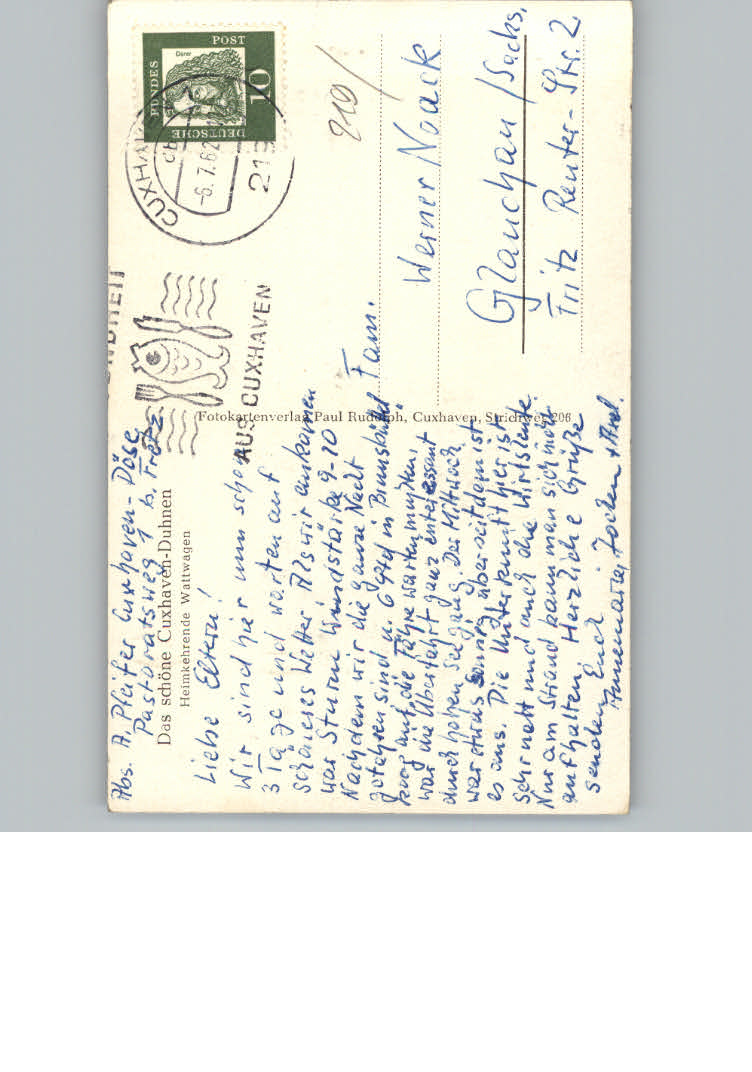 Abs. A. Pfeifer Cuxhaven-Döse
Pastoratsweg 1 b. Fretz
Das schöne Cuxhaven-Duhnen
Heimkehrende Wattwagen
Liebe Eltern!
Wir sind hier nun schon
3 Tage und warten auf
schöneres Wetter. Als wir ankamen
war Sturm Windstärke 9-10
Nachdem wir die ganze Nacht
gefahren sind u. 6 Std in Brunsbüttel
koog auf die Fähre warten mußten,
war die Überfahrt ganz interessant
durch hohen Seegang. Der Mittwoch
war etwas sonnig aber seitdem ist
es aus. Die Unterkunft hier ist
sehr nett und auch die Wirtsleute.
Nur am Strand kann man sich nicht
aufhalten. Herzliche Grüße
senden Euch
Annemarie, Jochen +
Fotokartenverlag Paul Rudolph, Cuxhaven, Strichweg 206
DEUTSCHE BUNDESPOST
Dürer
10
CUXHAVEN
-6.7.62
213
AUS CUXHAVEN
219/
Fam.
Werner Noack
Glauchau/Sachs.
Fritz Reuter-Str. 2